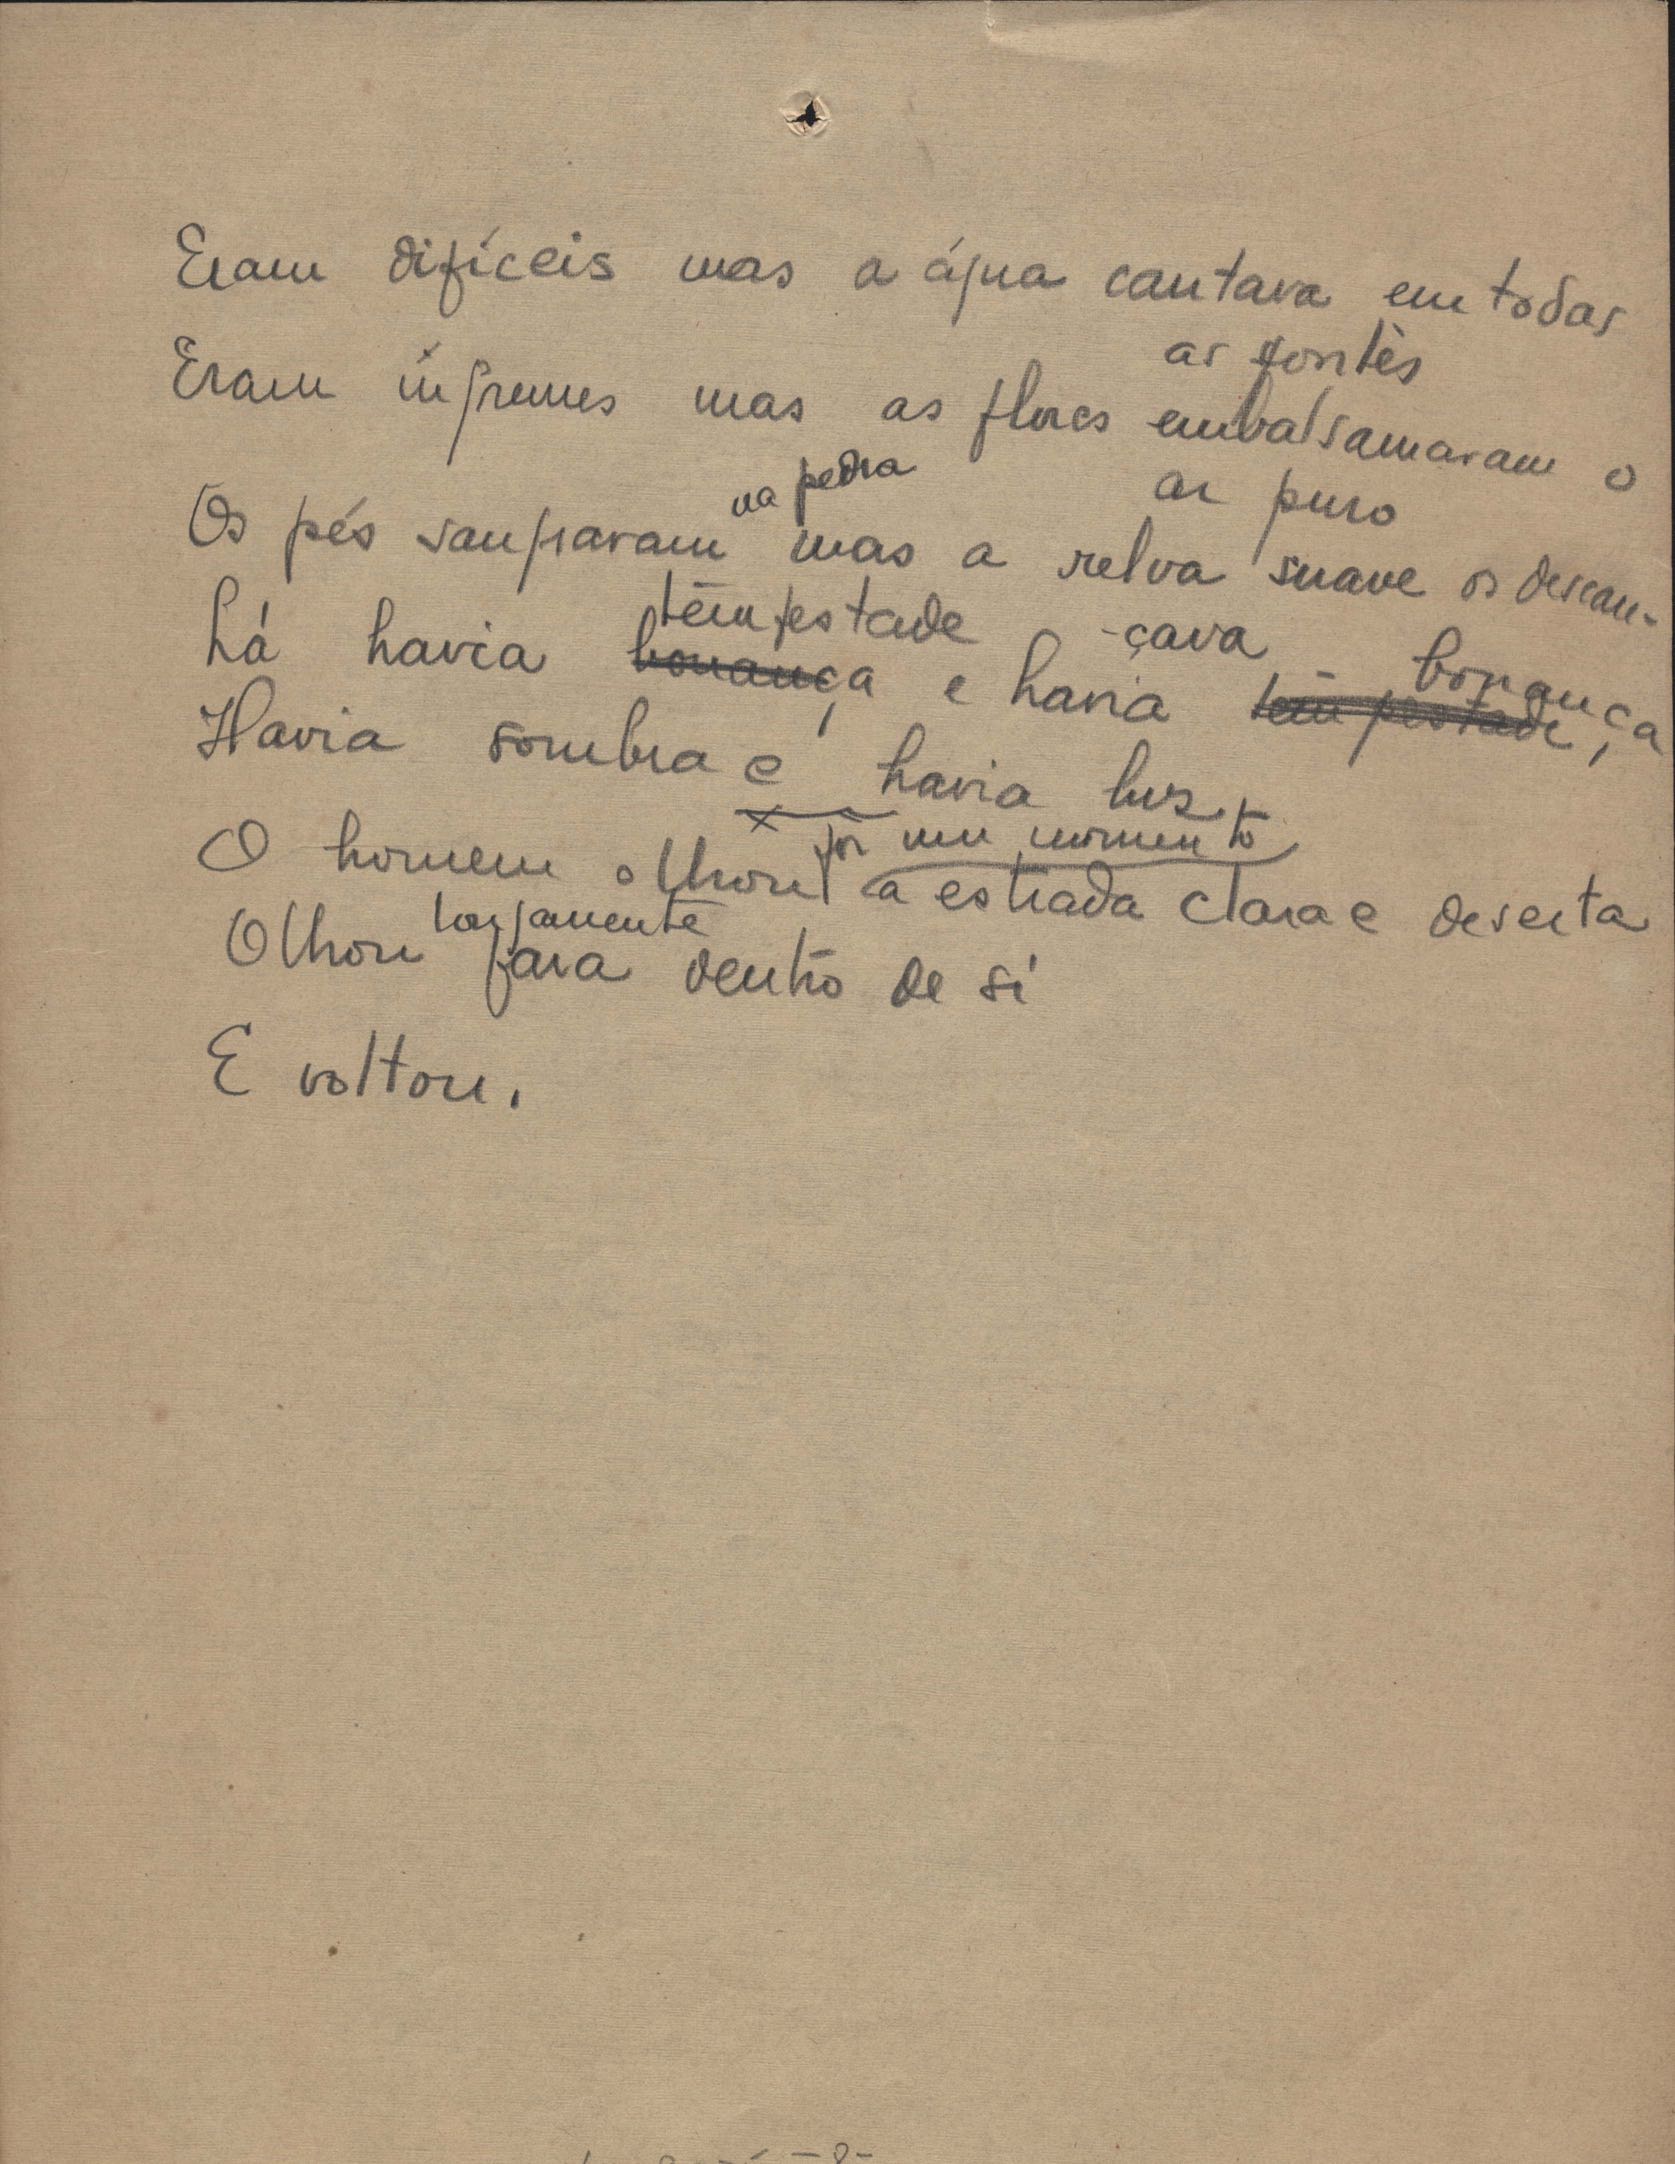 Eram difíceis mas a água cantava em todas
as fontes
Eram íngremes mas as flores embalsamavam o
ar puro
na pedra
Os pés sangravam mas a relva suave os descan-
-çava
tempestade bonança
Lá havia bonança e havia tempestade,
Havia sombra e havia luz
por um momento
O homem olhou a estrada clara e deserta
longamente
Olhou para dentro de si
E voltou.